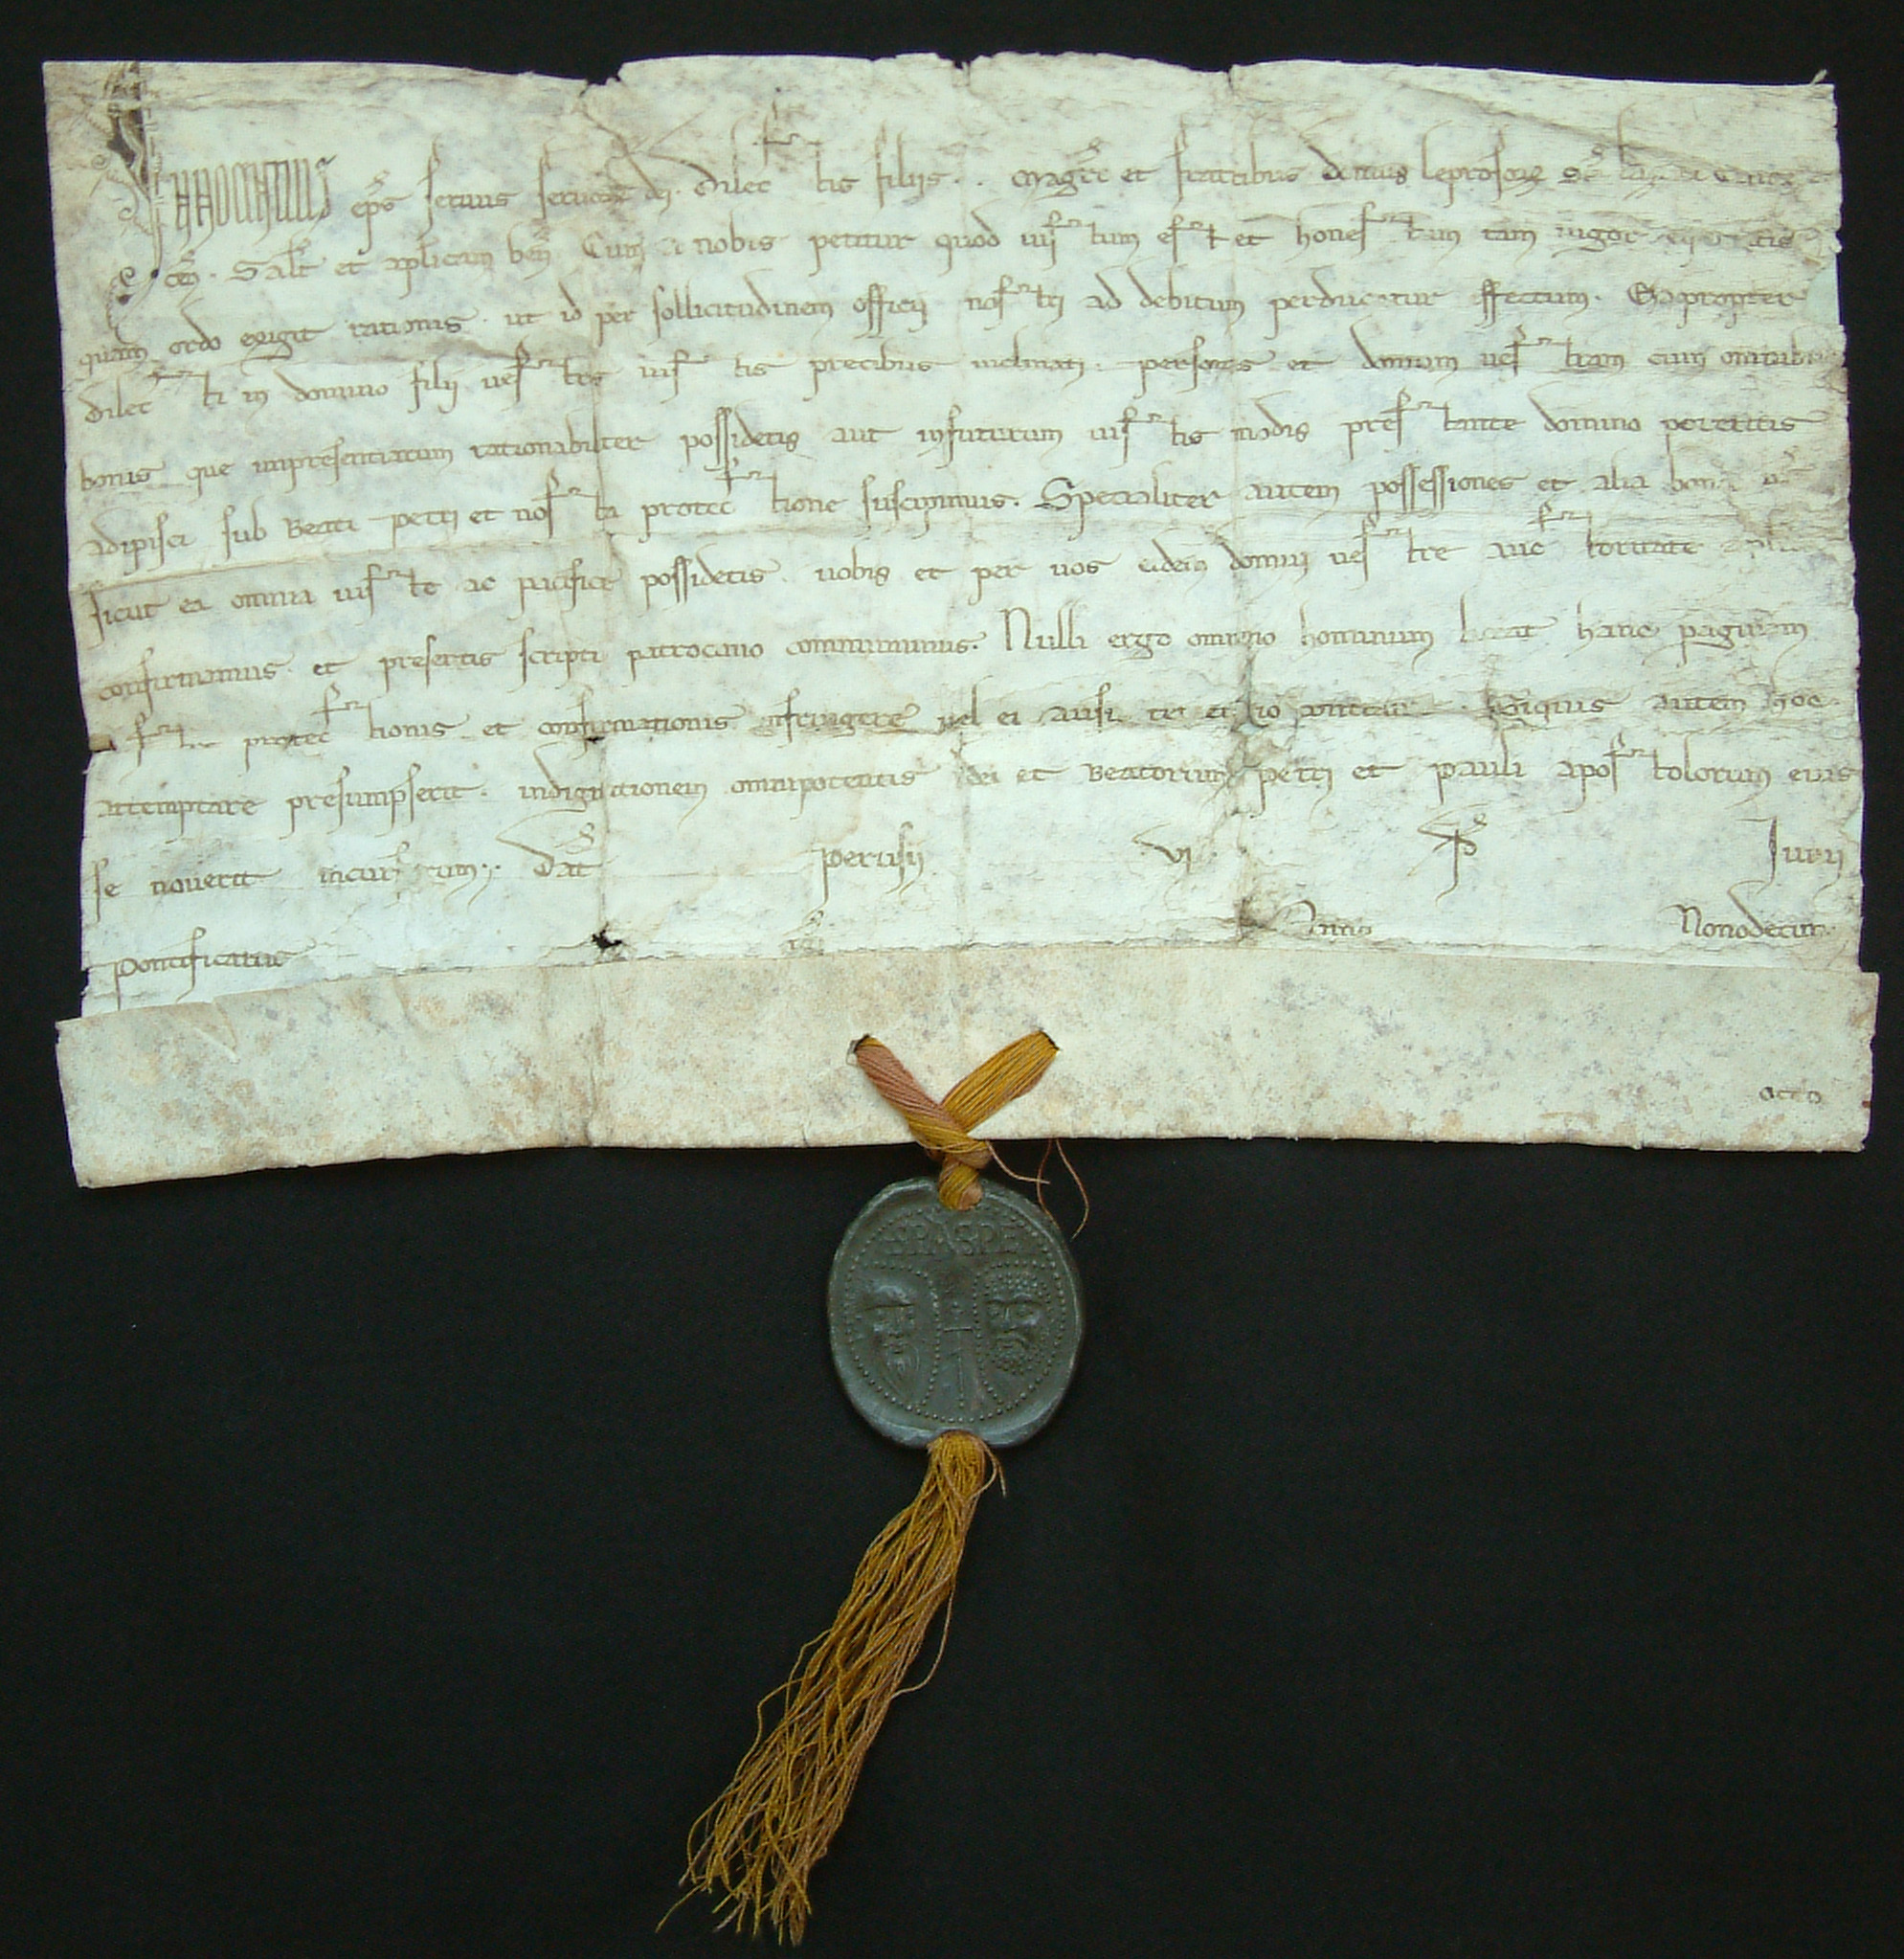 INNOCENTIUS ep̄s seruus seruoꝝ dī. Dilectis filiis .. Magr̄o et fratribus domus leprosoꝝ Sc̄i
Salt̄ et apl̄icam ben̄. Cum a nobis petitur quod iustum est et honestum tam uigor equitatis
quam ordo exigit rationis. ut id per sollicitudinem officii nostri ad debitum perducatur effectum. Eapropter
dilecti in domino filii uestris iustis precibus inclinati. personas et domum uestram cum omnibus
bonis que impresentiarum rationabiliter possidetis aut infuturum iustis modis prestante domino poteritis
adipisci sub Beati Petri et nostra protectione suscipimus. Specialiter autem possessiones et alia bona ur̄a
sicut ea omnia iuste ac pacifice possidetis. uobis et per uos eidem domui uestre auctoritate
confirmamus. et presentis scripti patrocinio communimus. Nulli ergo omnino hominum liceat hanc paginam
nostre protectionis et confirmationis infringere uel ei ausu contraire. Siquis autem hoc
attemptare presumpserit. indignationem omnipotentis dei et Beatorum Petri et Pauli apostolorum eius
se nouerit incursurum. Dat̄ Perusii vi kl̄ Iunii
Pontificatus nr̄i Anno Nonodecimo
octo
SPASPE